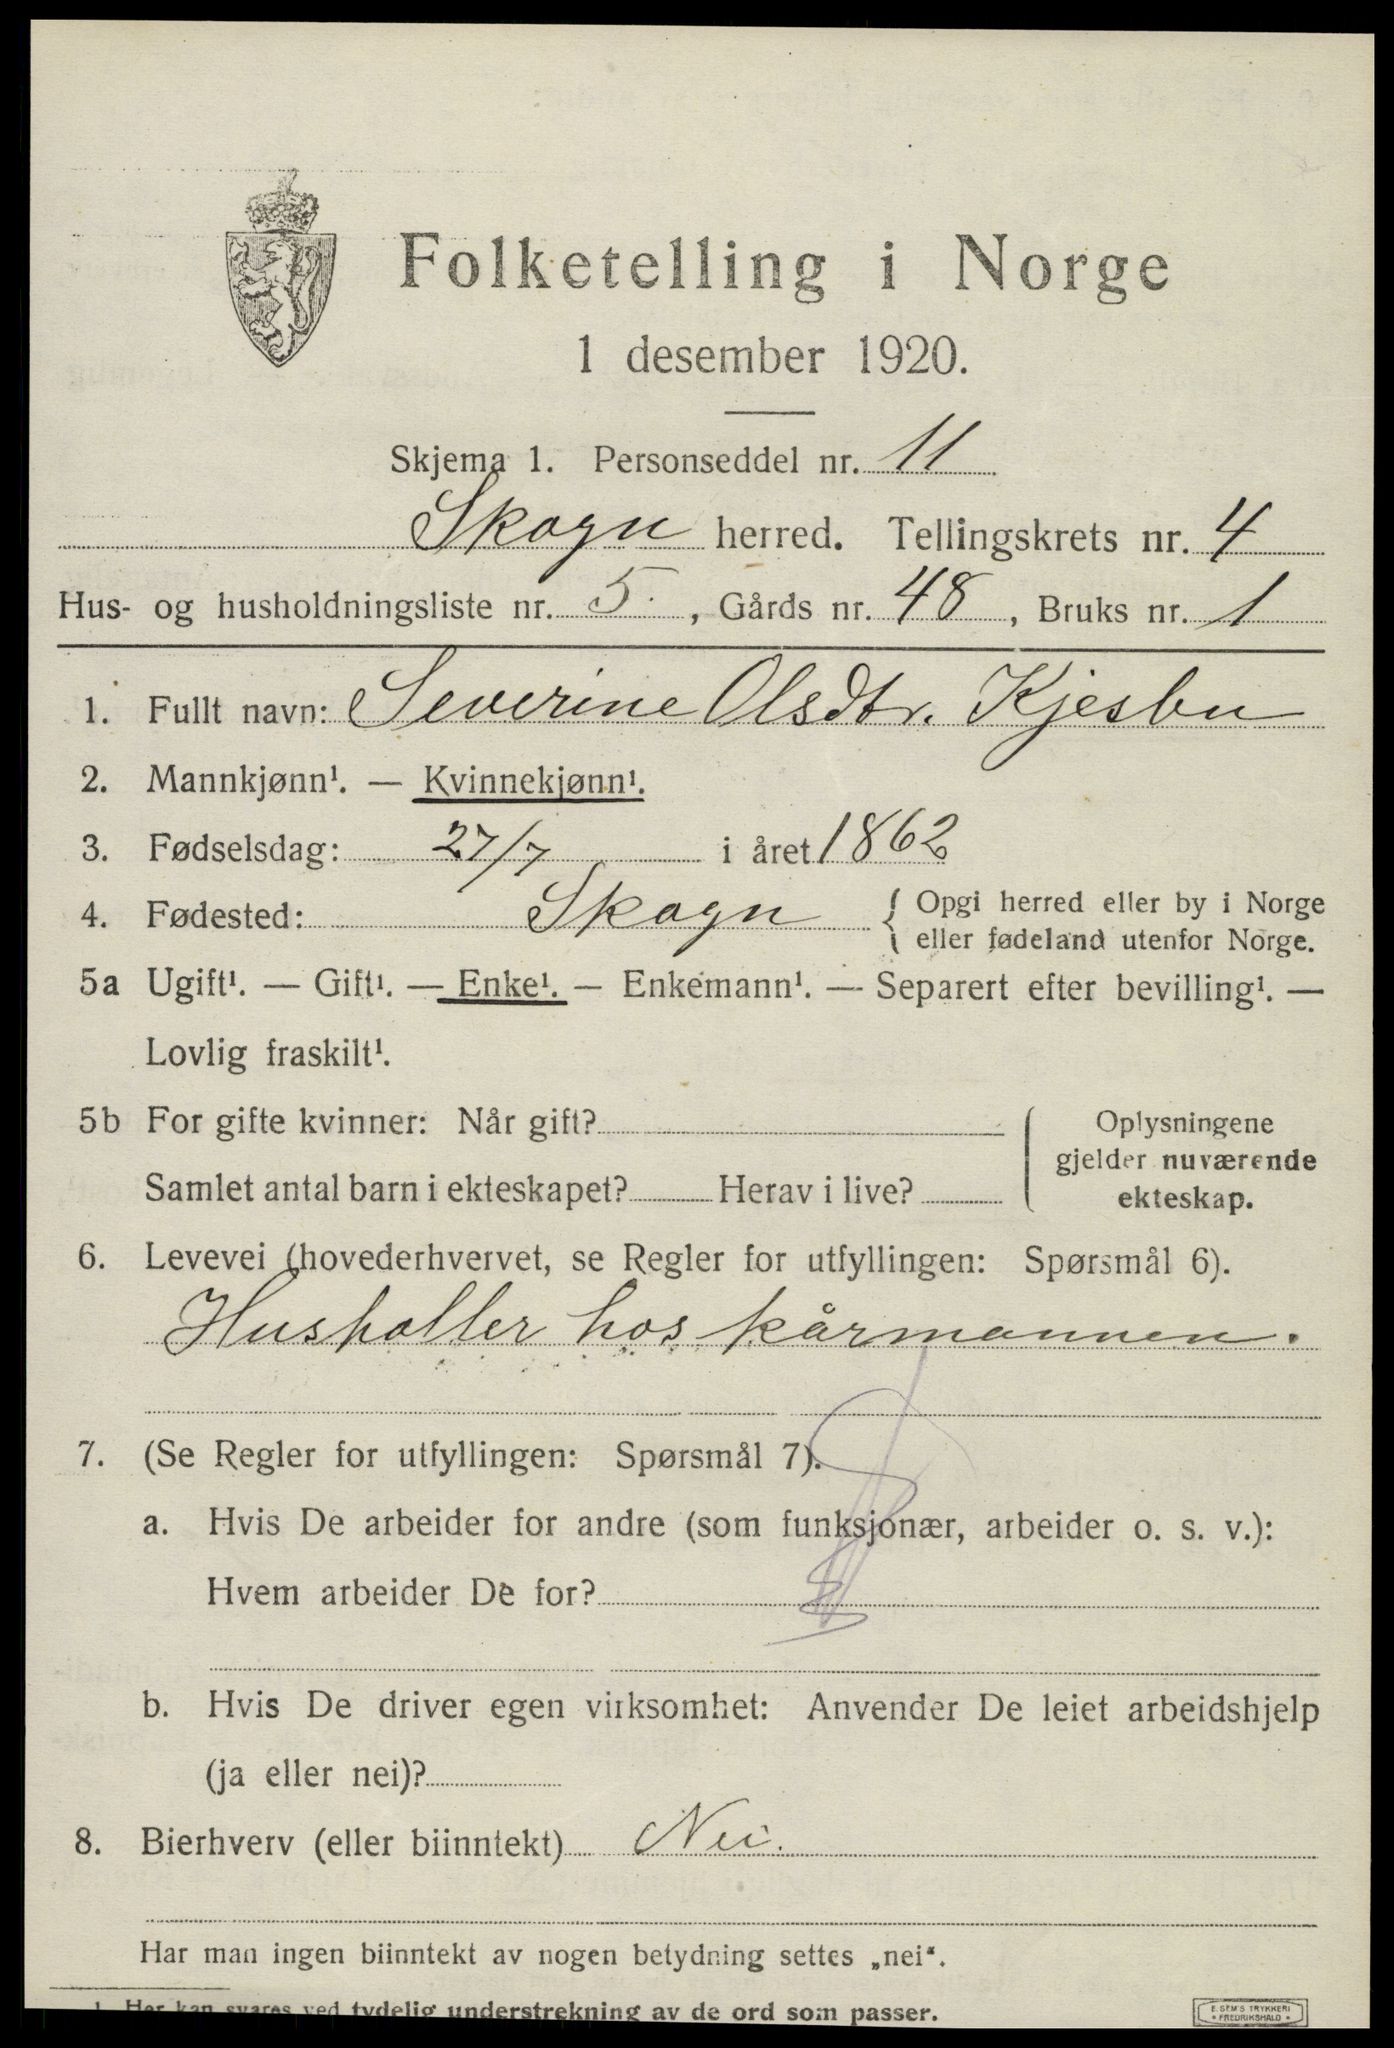 Folketelling i Norge
1 desember 1920.
Skjema 1. Personseddel nr. 11
Skogn herred. Tellingskrets nr. 4
Hus- og husholdningsliste nr. 5. , Gårds nr. 48 , Bruks nr. 1
1. Fullt navn: Severine Olsdtr. Kjesbu
2. Mannkjønn¹. — Kvinnekjønn¹.
3. Fødselsdag: 27/7 i året 1862
4. Fødested: Skogn { Opgi herred eller by i Norge
eller fødeland utenfor Norge.
5a Ugift¹. — Gift¹. — Enke¹. — Enkemann¹. — Separert efter bevilling¹. —
Lovlig fraskilt¹.
5b For gifte kvinner: Når gift?
Samlet antal barn i ekteskapet? Herav i live?
Oplysningene
gjelder nuværende
ekteskap.
6. Levevei (hovederhvervet, se Regler for utfyllingen: Spørsmål 6).
Husholler hos kårmannen.
7. (Se Regler for utfyllingen: Spørsmål 7).
a. Hvis De arbeider for andre (som funksjonær, arbeider o. s. v.):
Hvem arbeider De for?
b. Hvis De driver egen virksomhet: Anvender De leiet arbeidshjelp
(ja eller nei)?
8. Bierhverv (eller biinntekt) Nei.
Har man ingen biinntekt av nogen betydning settes „nei“.
1 Her kan svares ved tydelig understrekning av de ord som passer.
E. SEM'S TRYKKERI
FREDRIKSHALD